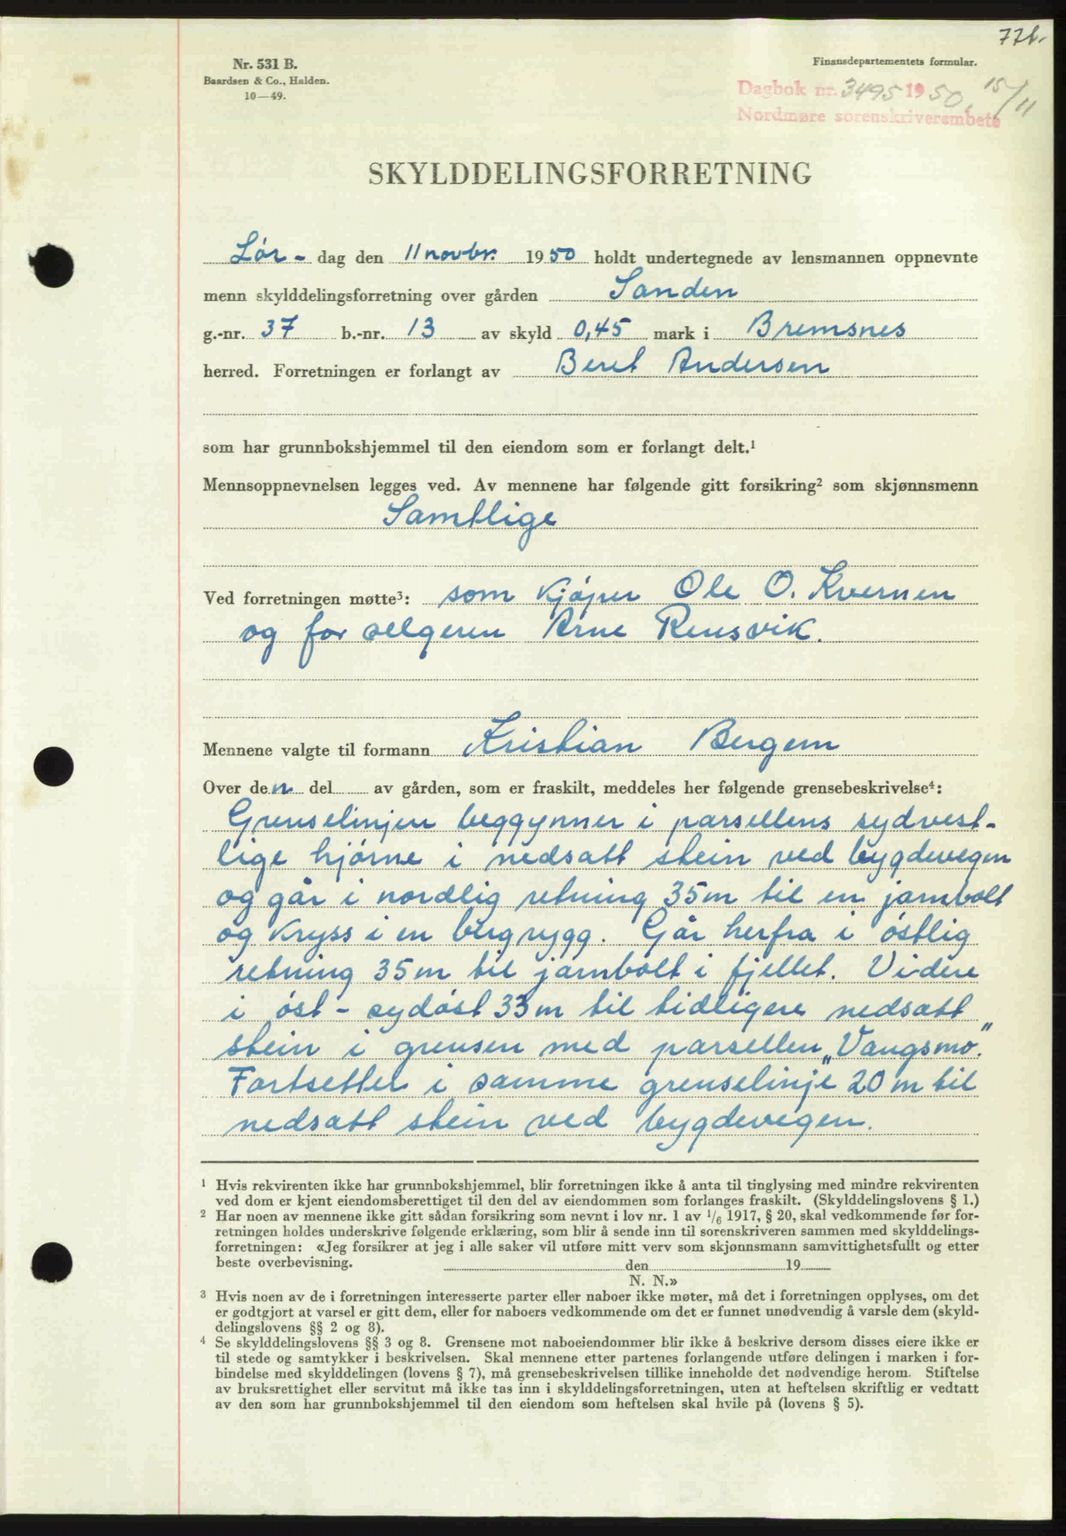 776.
Nr. 531 B.
Baardsen & Co., Halden.
10—49.
Finansdepartementets formular.
Dagbok nr. 3495 1950, 15/11
Nordmøre sorenskriverembete
SKYLDDELINGSFORRETNING
Lør- dag den 11 novbr. 1950 holdt undertegnede av lensmannen oppnevnte
menn skylddelingsforretning over gården Sanden
g.-nr. 37 b.-nr. 13 av skyld 0,45 mark i Bremsnes
herred. Forretningen er forlangt av Beret Andersen
som har grunnbokshjemmel til den eiendom som er forlangt delt.¹
Mennsoppnevnelsen legges ved. Av mennene har følgende gitt forsikring² som skjønnsmenn
Samtlige
Ved forretningen møtte³: som kjøper Ole O. Kvernen
og for selgeren Arne Rensvik.
Mennene valgte til formann Kristian Bergem
Over den del av gården, som er fraskilt, meddeles her følgende grensebeskrivelse⁴:
Grenselinjen beggynner i parsellens sydvest-
lige hjørne i nedsatt stein ved bygdevegen
og går i nordlig retning 35 m til en jarnbolt
og kryss i en bergrygg. Går herfra i østlig
retning 35 m til jarnbolt i fjellet. Videre
i øst - sydøst 33 m til tidligere nedsatt
stein i grensen med parsellen „Vangsmo".
Fortsetter i samme grenselinje 20 m til
nedsatt stein ved bygdevegen.
¹ Hvis rekvirenten ikke har grunnbokshjemmel, blir forretningen ikke å anta til tinglysing med mindre rekvirenten
ved dom er kjent eiendomsberettiget til den del av eiendommen som forlanges fraskilt. (Skylddelingslovens § 1.)
² Har noen av mennene ikke gitt sådan forsikring som nevnt i lov nr. 1 av 1/6 1917, § 20, skal vedkommende før for-
retningen holdes underskrive følgende erklæring, som blir å sende inn til sorenskriveren sammen med skylddelings-
forretningen: «Jeg forsikrer at jeg i alle saker vil utføre mitt verv som skjønnsmann samvittighetsfullt og etter
beste overbevisning. den 19
N. N.»
³ Hvis noen av de i forretningen interesserte parter eller naboer ikke møter, må det i forretningen opplyses, om det
er godtgjort at varsel er gitt dem, eller for naboers vedkommende om det er funnet unødvendig å varsle dem (skyld-
delingslovens §§ 2 og 8).
⁴ Se skylddelingslovens §§ 3 og 8. Grensene mot naboeiendommer blir ikke å beskrive dersom disses eiere ikke er
til stede og samtykker i beskrivelsen. Skal mennene etter partenes forlangende utføre delingen i marken i for-
bindelse med skylddelingen (lovens § 7), må grensebeskrivelsen tillike inneholde det nødvendige herom. Stiftelse
av bruksrettighet eller servitut må ikke tas inn i skylddelingsforretningen, uten at heftelsen skriftlig er vedtatt
av den som har grunnbokshjemmel til den eiendom som heftelsen skal hvile på (lovens § 5).